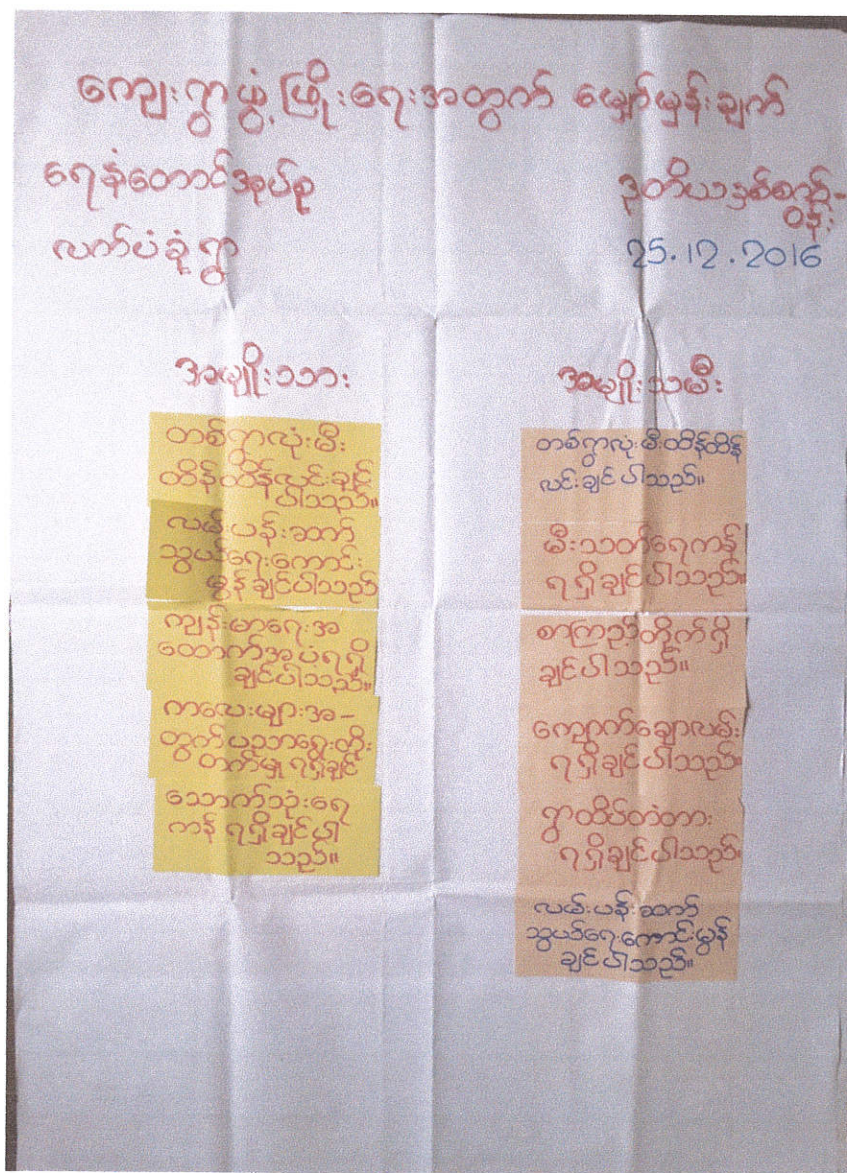 ကျေးရွာဖွံ့ဖြိုးရေးအတွက် မျှော်မှန်းချက်
ရေနံတောင်အုပ်စု
ဒုတိယနှစ်စက်ဝန်း
လက်ပံခုံရွာ
25.12.2016
အမျိုးသား
တစ်ရွာလုံးမီး
ထိန်ထိန်လင်းချင်
ပါသည်။
လမ်းပန်းဆက်
သွယ်ရေးကောင်း
မွန်ချင်ပါသည်
ကျန်းမာရေးအ
ထောက်အပံ့ရရှိ
ချင်ပါသည်။
ကလေးများအ-
တွက်ပညာရေးတိုး
တက်မှုရရှိချင်
သောက်သုံးရေ
ကန်ရရှိချင်ပါ
သည်။
အမျိုးသမီး
တစ်ရွာလုံးမီးထိန်ထိန်
လင်းချင်ပါသည်။
မီးသတ်ရေကန်
ရရှိချင်ပါသည်။
စာကြည့်တိုက်ရှိ
ချင်ပါသည်။
ကျောက်ချောလမ်း
ရရှိချင်ပါသည်။
ရွာထိပ်တံတား
ရရှိချင်ပါသည်။
လမ်းပန်းဆက်
သွယ်ရေးကောင်းမွန်
ချင်ပါသည်။